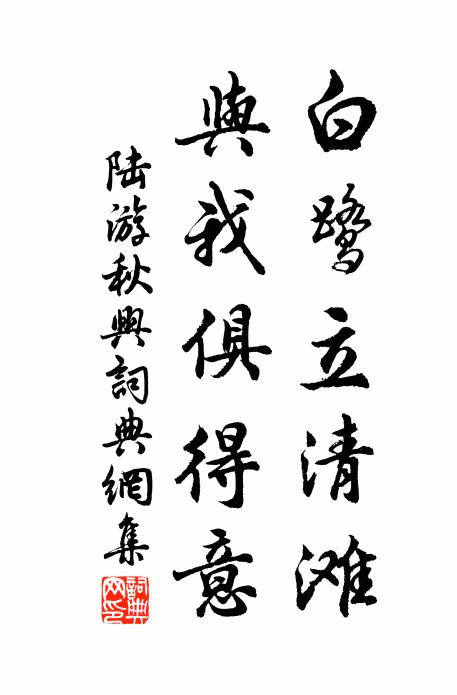 白鹭立清滩
與我俱得意
陆游秋興詞典網集
詞典网印